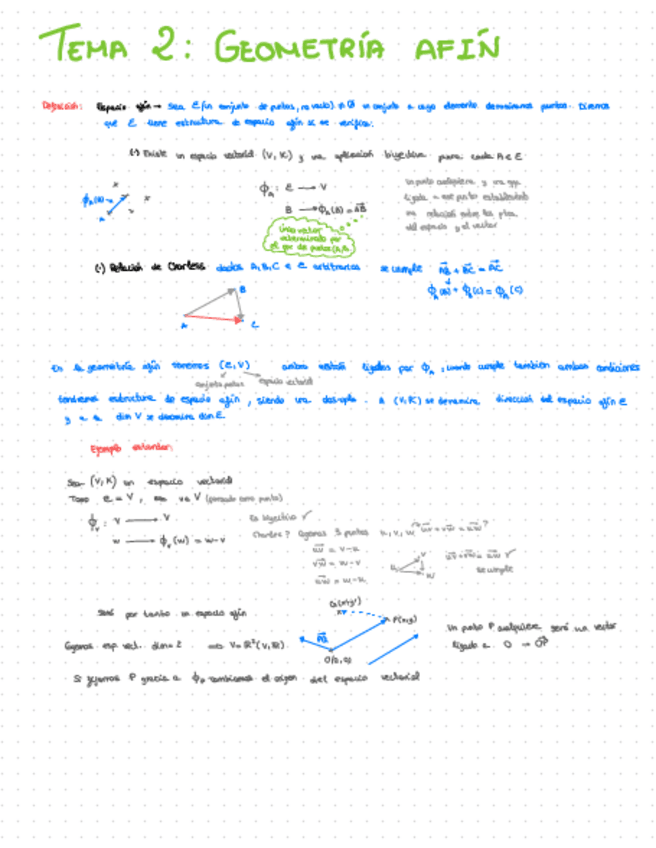 TEMA 2: GEOMETRÍA AFÍN
Definición: Espacio afín → Sea E (un conjunto de puntos, no vacío) ≠ Ø un conjunto a cuyo elemento denominamos puntos. Diremos
que E tiene estructura de espacio afín si se verifica:
(·) Existe un espacio vectorial (V, K) y una aplicación biyectiva para cada A ∈ E
ϕ_A : E → V
B → ϕ_A(B) = AB
un punto cualquiera y una app
ligada a ese punto estableciendo
una relación entre los ptos.
del espacio y el vector
ϕ_A(B)
A
único vector
determinado por
el par de puntos (A,B)
(·) Relación de Charles dados A, B, C ∈ E arbitrarios se cumple AB + BC = AC
ϕ_A(B) + ϕ_B(C) = ϕ_A(C)
B
A C
En la geometría afín tenemos (E, V) ambos estarán ligados por ϕ_A, cuando cumple también ambas condiciones
conjunto puntos espacio vectorial
tendremos estructura de espacio afín, siendo una A (V, K) se denomina dirección del espacio afín E
y a dim V se denomina dim E
Ejemplo estándar:
Sea (V, K) un espacio vectorial
Tomo E = V, v ∈ V (pensado como punto)
ϕ_v : V → V
w → ϕ_v(w) = w-v
Es biyectiva ✓
Charles? Cojamos 3 puntos u, v, w uv + vw = uw?
uv = v-u
vw = w-v
uw = w-u
u v w
uv + vw = uw ✓
se cumple
Será por tanto un espacio afín
Cojamos esp vect. dim = 2 ⇒ V = R² (V, R)
Q(x',y')
P(x,y)
O(0,0)
Un punto P cualquiera será un vector
ligado a O → OP
Si fijamos P gracias a ϕ_P cambiamos el origen del espacio vectorial